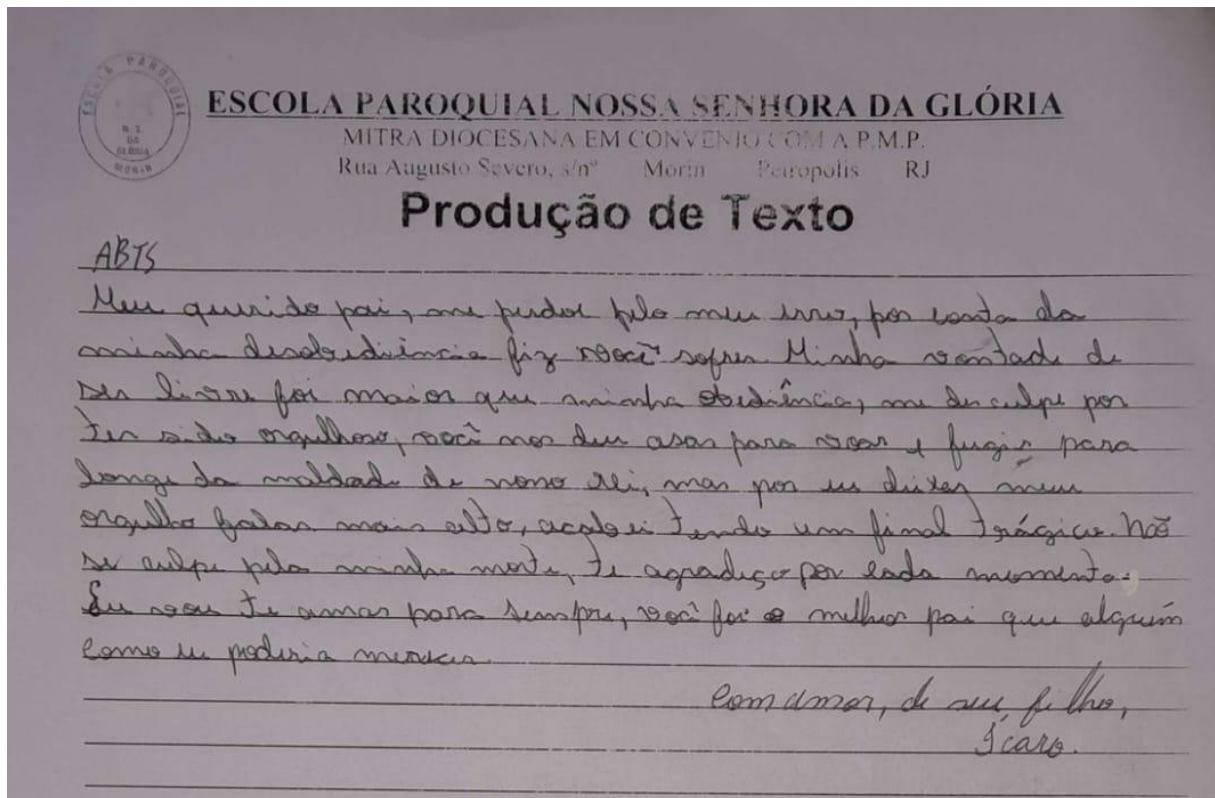 ESCOLA PAROQUIAL
N. S.
DA
GLÓRIA
MORIN
ESCOLA PAROQUIAL NOSSA SENHORA DA GLÓRIA
MITRA DIOCESANA EM CONVENIO COM A P.M.P.
Rua Augusto Severo, s/nº Morin Petropolis RJ
Produção de Texto
ABTS
Meu querido pai, me perdoe pelo meu erro, por conta da
minha desobediência fiz você sofrer. Minha vontade de
ser livre foi maior que minha obediência, me desculpe por
ter sido orgulhoso, você nos deu asas para voar e fugir para
longe da maldade de nosso rei, mas por eu deixar meu
orgulho falar mais alto, acabei tendo um final trágico. Não
se culpe pela minha morte, te agradeço por cada momento.
Eu vou te amar para sempre, você foi o melhor pai que alguém
como eu poderia merecer.
Com amor, de seu filho,
Ícaro.